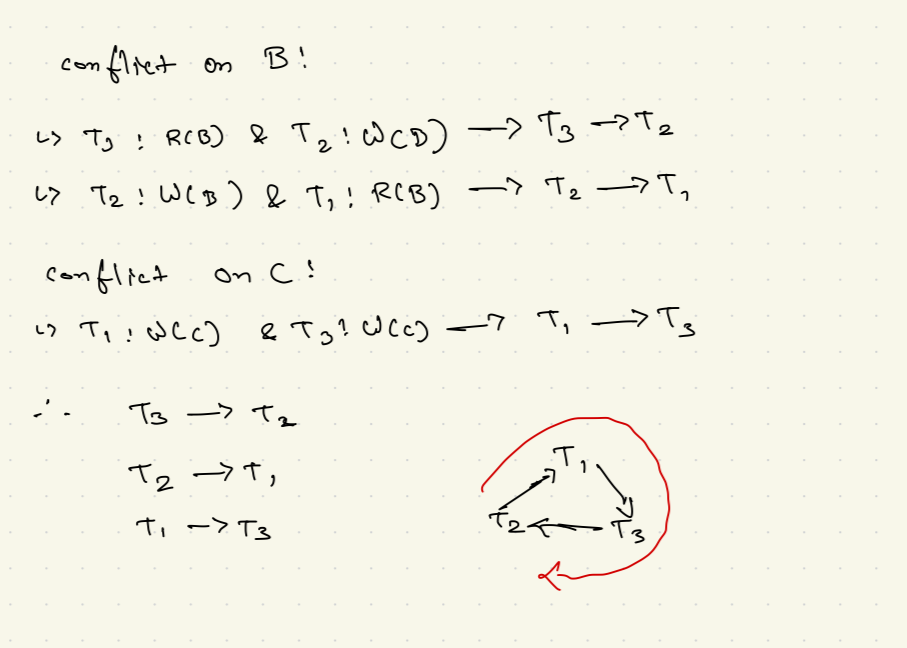 conflict on B:
↳ T3 : R(B) & T2 : W(D) → T3 → T2
↳ T2 : W(B) & T1 : R(B) → T2 → T1
conflict on C:
↳ T1 : W(C) & T3 : W(C) → T1 → T3
∴ T3 → T2
T2 → T1
T1 → T3
T1
T2 T3